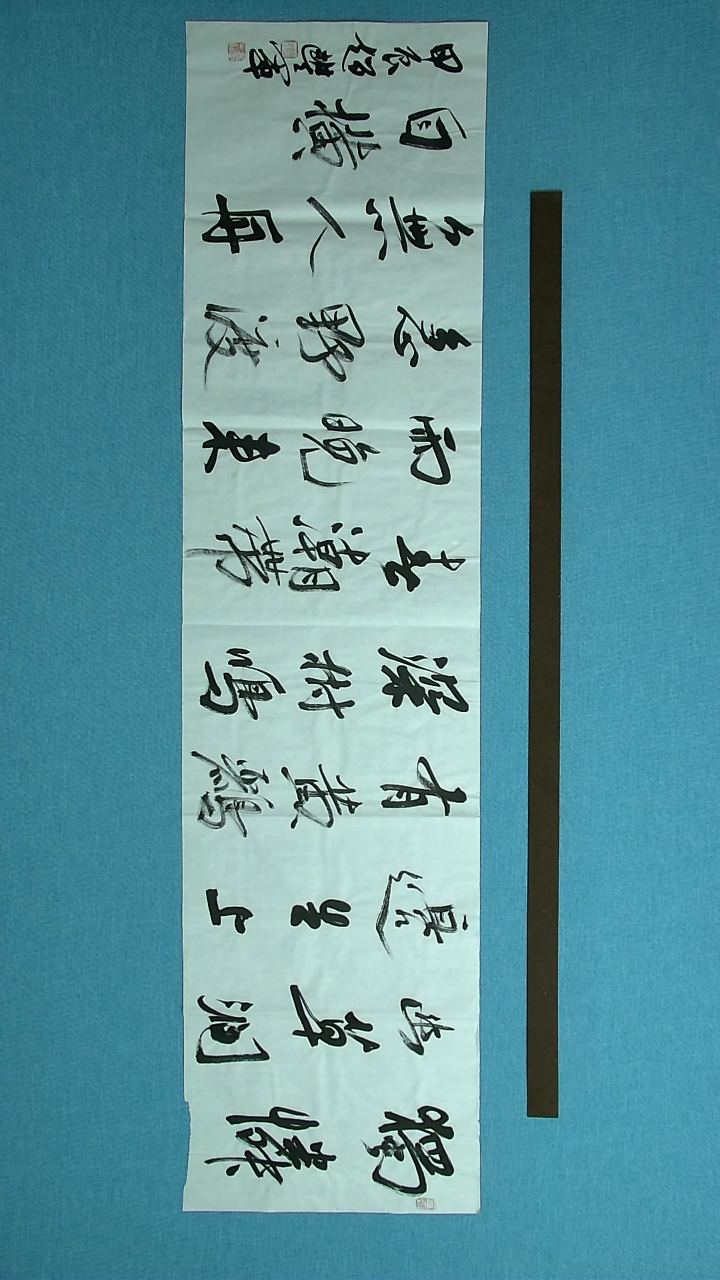 獨憐
幽草澗
邊生上
有黄鸝
深樹鳴
春潮帶
雨晚來
急野渡
無人舟
自橫
甲辰